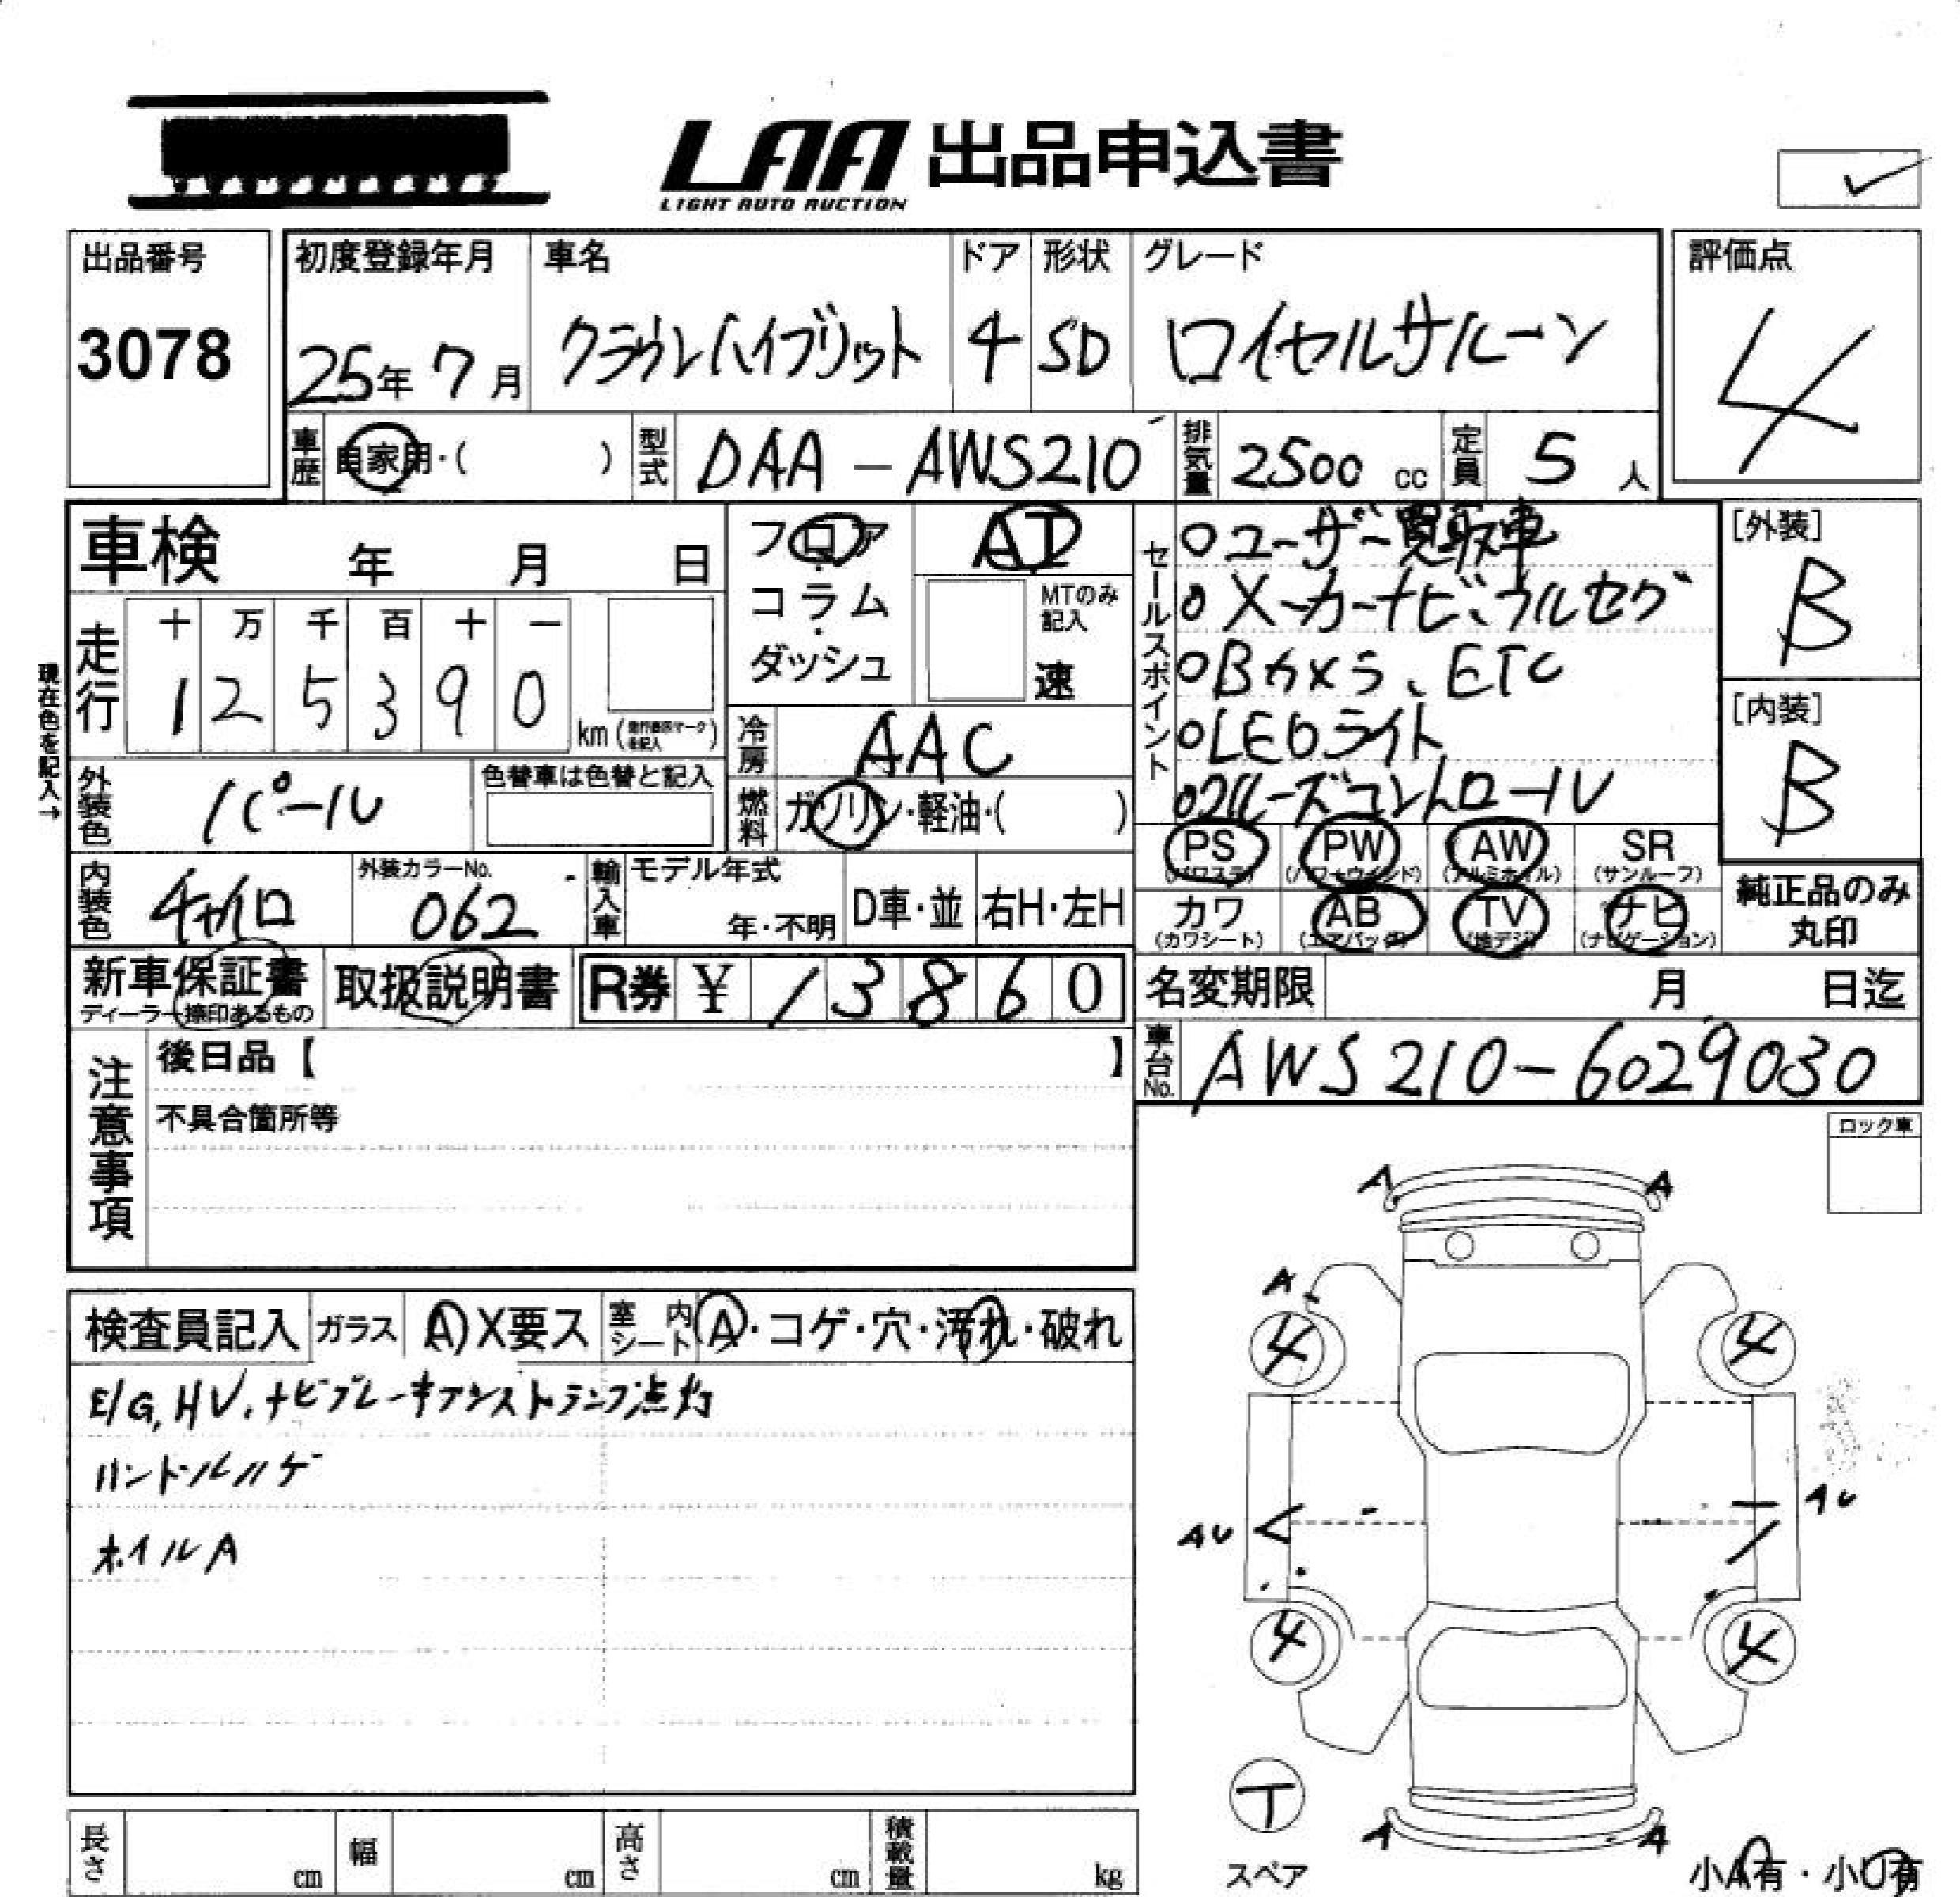 LAA 出品申込書
LIGHT AUTO AUCTION
出品番号
3078
初度登録年月
25年 7月
車名
クラウンハイブリット
ドア
4
形状
SD
グレード
ロイヤルサルーン
評価点
4
車歴
自家用・( )
型式
DAA-AWS210
排気量
2500 cc
定員
5 人
車検 年 月 日
フロア
・
コラム
・
ダッシュ
AT
MTのみ
記入
速
セールスポイント
○ユーザー買取車
○メーカーナビ、フルセグ
○Bカメラ、ETC
○LEDライト
○クルーズコントロール
[外装]
B
[内装]
B
現在色を記入→
走行
十 万 千 百 十 一
1 2 5 3 9 0
km
冷房
AAC
燃料
ガソリン・軽油・( )
外装色
パール
色替車は色替と記入
内装色
チャイロ
外装カラーNo.
062
輸入車
モデル年式
年・不明
D車・並
右H・左H
PS
(パワステ)
PW
(パワーウインド)
AW
(アルミホイル)
SR
(サンルーフ)
カワ
(カワシート)
AB
(エアバッグ)
TV
(地デジ)
ナビ
(ナビゲーション)
純正品のみ
丸印
新車保証書
ディーラー捺印あるもの
取扱説明書
R券 ¥ 13860
名変期限 月 日迄
車台No.
AWS210-6029030
注意事項
後日品【 】
不具合箇所等
ロック車
検査員記入
ガラス
A X要ス
室内シート
A・コゲ・穴・汚れ・破れ
E/G, HV, ナビブレーキアシストランプ点灯
ハンドルハゲ
ホイルA
A A
A
4 4
AU AU
4 4
T
スペア
A A
小A有・小U有
長さ cm
幅 cm
高さ cm
積載量 kg